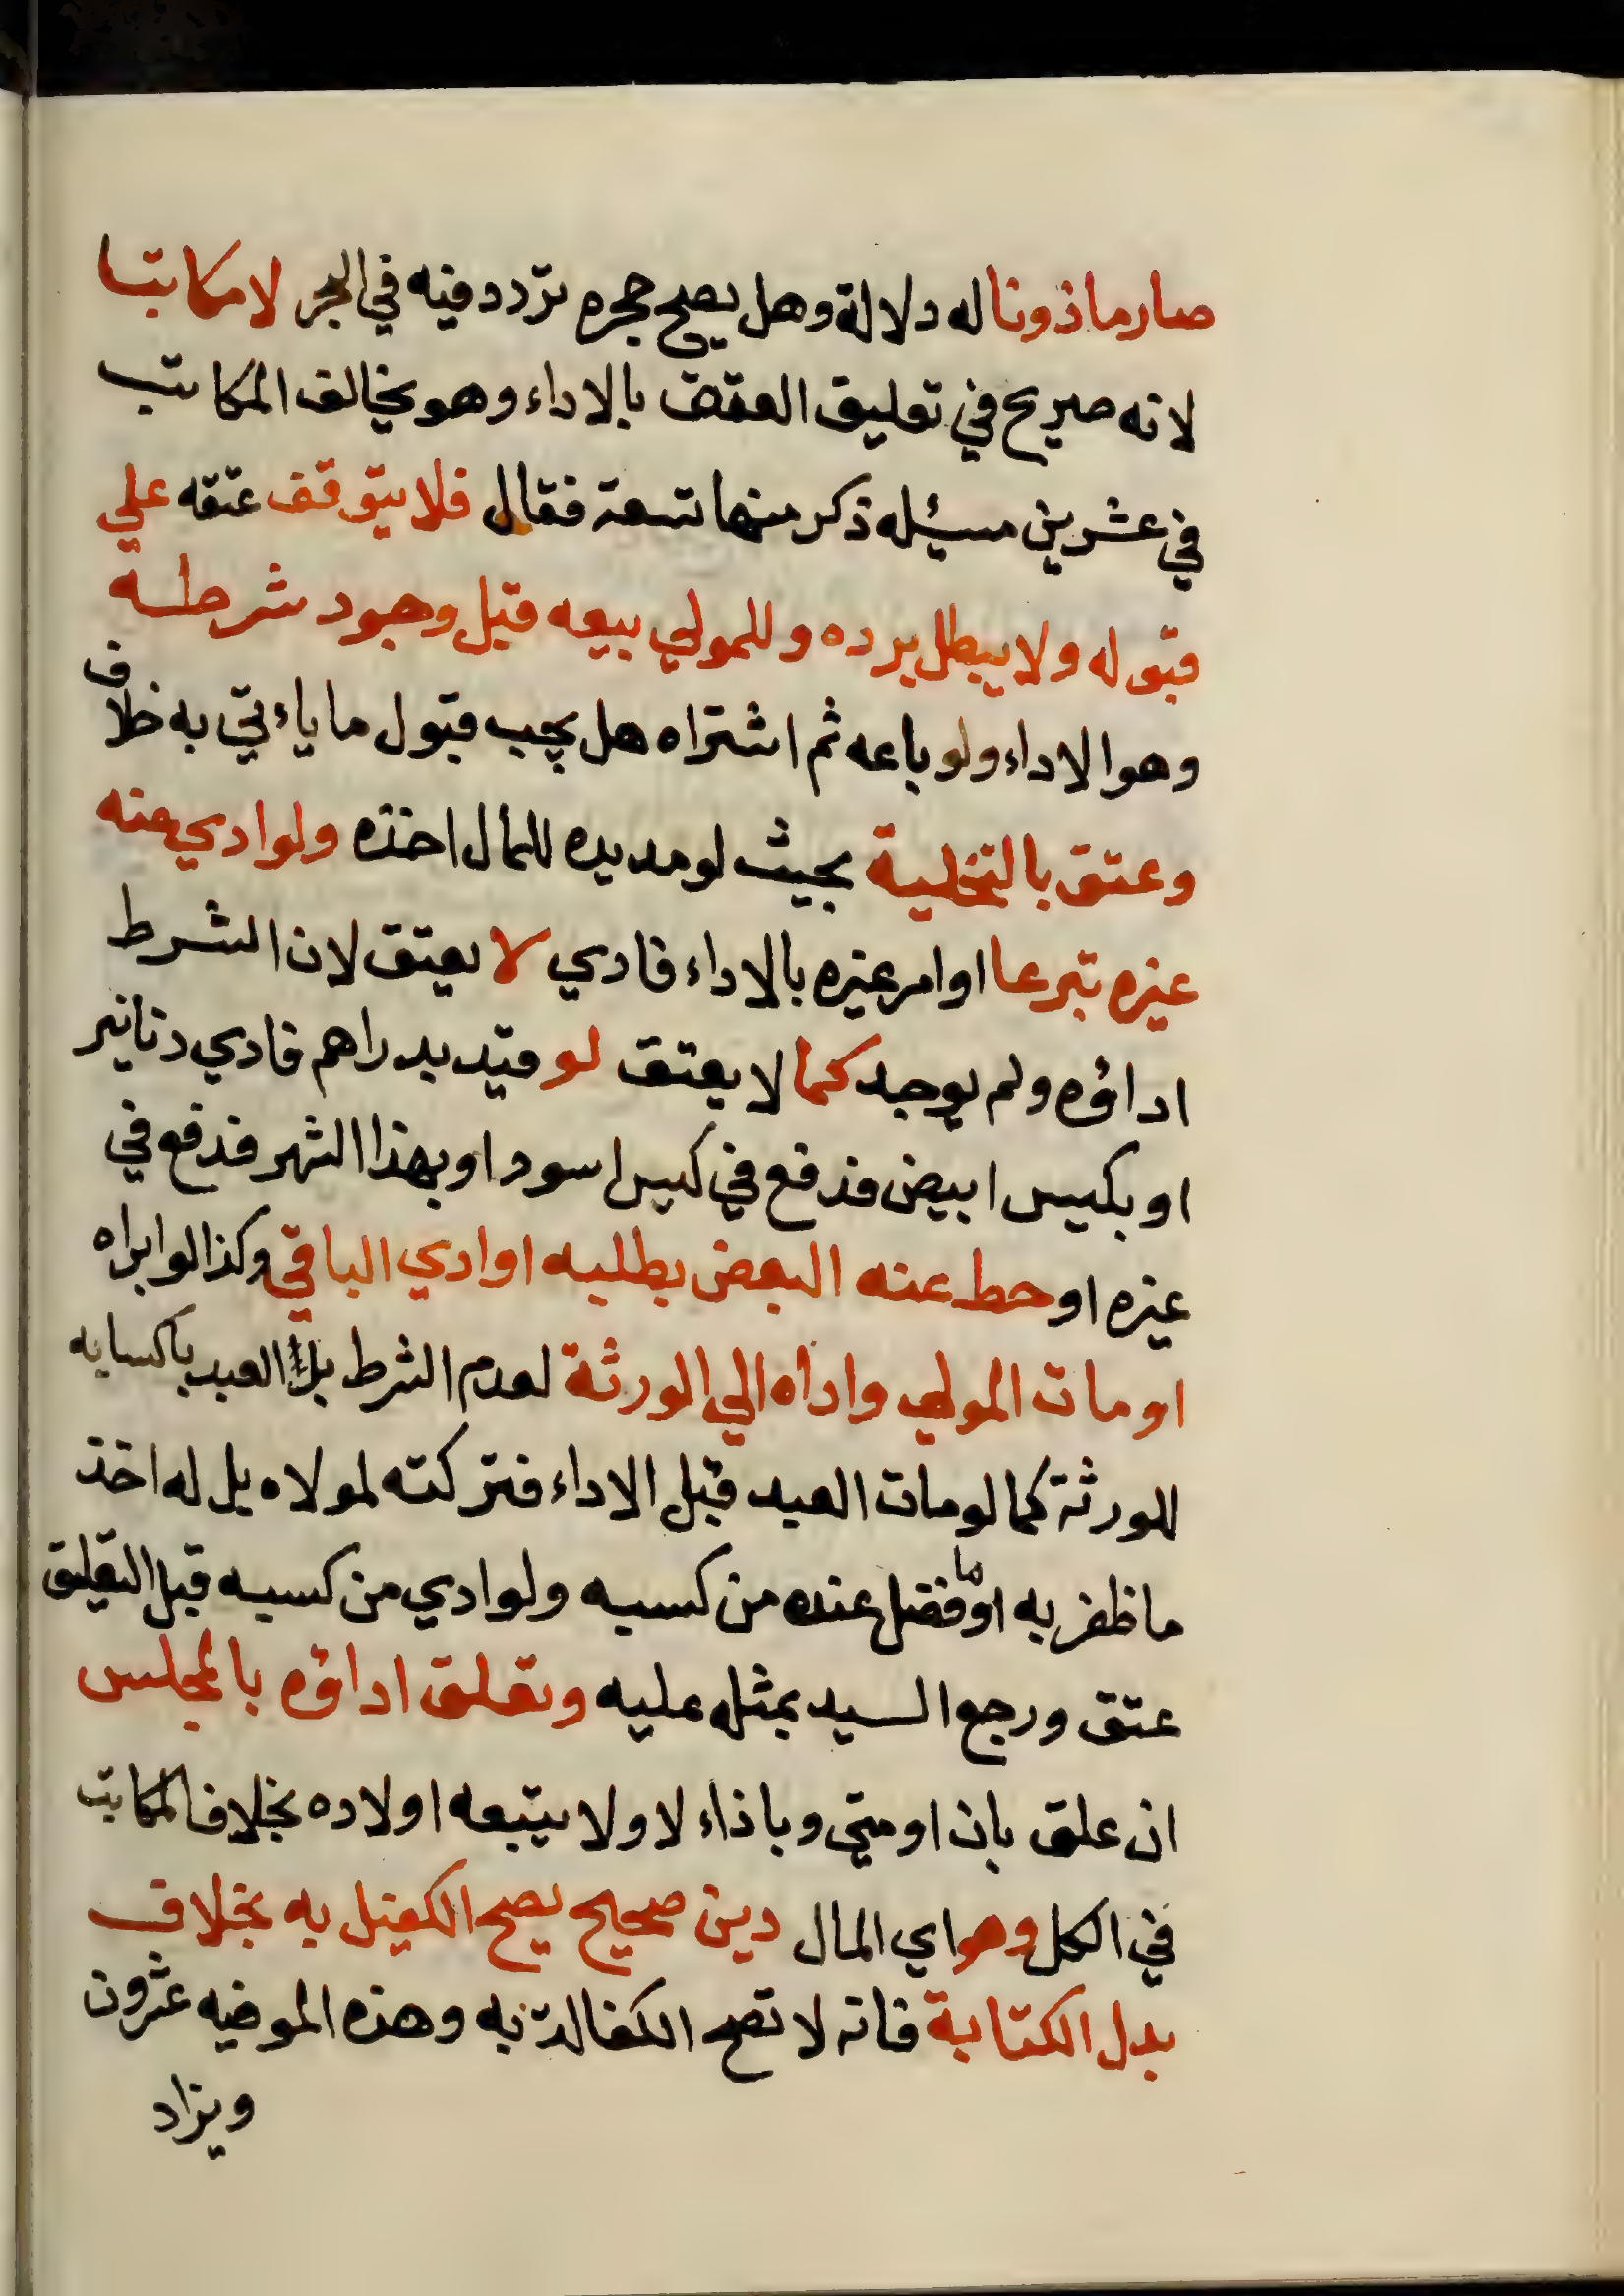 صار ماذونا له دلالة وهل يصح حجره تردد فيه في البحر لا مكاتبا
لانه صريح في تعليق العتق بالاداء وهو يخالف المكاتب
في عشرين مسئله ذكر منها تسعة فقال فلا يتوقف عتقه علي
قبوله ولا يبطل برده وللمولي بيعه قبل وجود شرطه
وهوا لاداء ولو باعه ثم اشتراه هل يجب قبول ما ياءتي به خلاف
وعتق بالتخلية بحيث لو مد يده للمال اخذه ولو ادي عنه
غيره تبرعا او امر غيره بالاداء فادي لا يعتق لان الشرط
اداؤه ولم يوجد كما لا يعتق لو قيد بدراهم فادي دنانير
او بكيس ابيض فدفع في كيس اسود او بهذا الشهر فدفع في
غيره او حط عنه البعض بطلبه او ادي الباقي وكذا لو ابراه
او مات المولي واداه الي الورثة لعدم الشرط بل العبد باكسابه
للورثة كما لو مات العبد قبل الاداء فتركته لمولاه بل له اخذ
ما ظفر به او ما فضل عنده من كسبه ولو ادي من كسبه قبل التعليق
عتق ورجع السيد بمثله عليه وتعلق اداؤه بالمجلس
ان علق بان او متي وباذاء لا ولا يتبعه اولاده بخلاف المكاتب
في الكل وهو اي المال دين صحيح يصح الكفيل به بخلاف
بدل الكتابة فانه لا تصح الكفالة به وهذه الموفيه عشرون
ويزاد